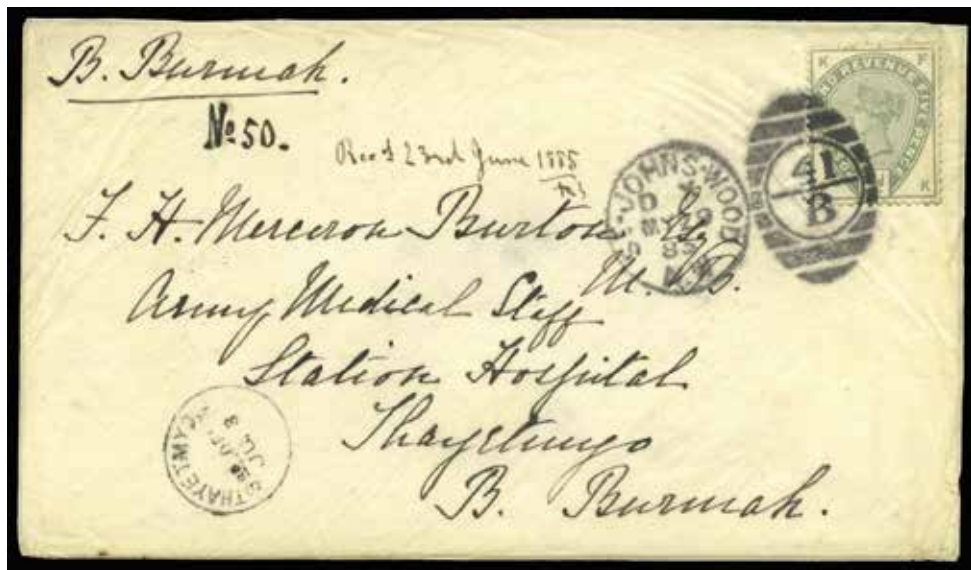 B. Burmah.
No 50.
Recd 23rd June 1885
F. H. Merceron Burton Esq
M.B.
Army Medical Staff
Station Hospital
Thayetmyo
B. Burmah.
ST. JOHNS-WOOD
X
MY 29
85
41
B
K F
AND REVENUE FIVE PENCE
K
THAYETMYO
JU 3